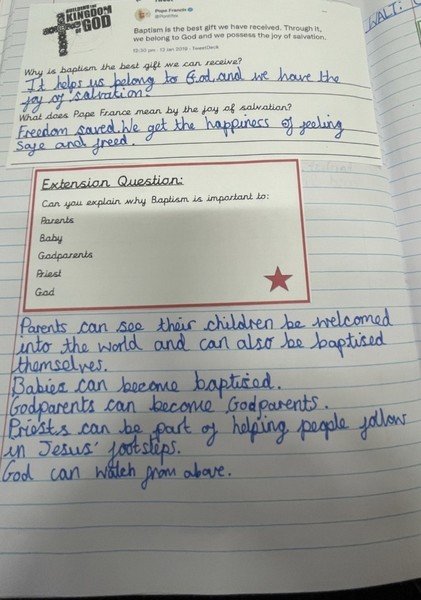 Tweet
BUILDING THE
KINGDOM
OF GOD
Pope Francis
@Pontifex
WALT:
Baptism is the best gift we have received. Through it,
we belong to God and we possess the joy of salvation.
12:30 pm · 12 Jan 2019 · TweetDeck
Why is baptism the best gift we can receive?
It helps us belong to God, and we have the
joy of salvation.
What does Pope France mean by the joy of salvation?
Freedom saved. We get the happiness of feeling
safe and freed.
Extension Question:
Can you explain why Baptism is important to:
Parents
Baby
Godparents
Priest
God
Parents can see their children be welcomed
into the world and can also be baptised
themselves.
Babies can become baptised.
Godparents can become Godparents.
Priests can be part of helping people follow
in Jesus' footsteps.
God can watch from above.